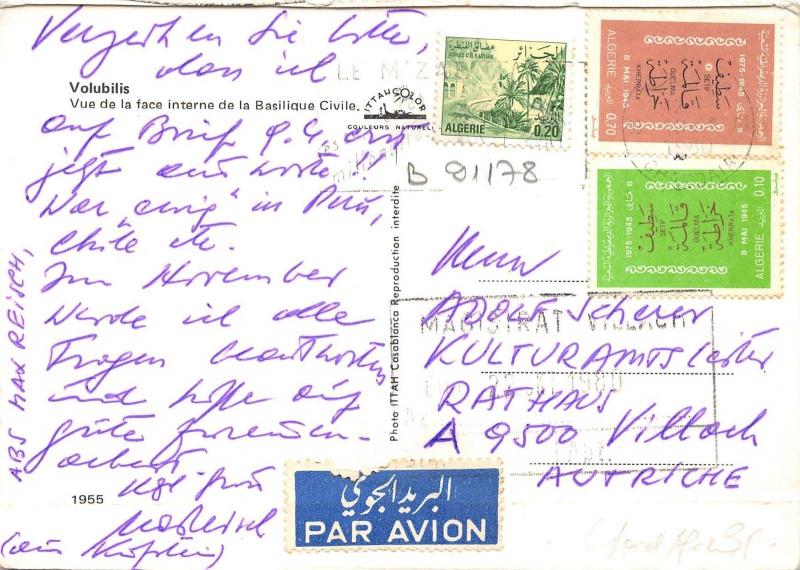 Verzeihen Sie bitte,
dass ich
Volubilis
Vue de la face interne de la Basilique Civile.
auf Brief 9.4. erst
jetzt antworte.
War „ewig" in Peru,
Chile etc.
Im November
werde ich alle
Fragen beantworten
und hoffe auf
gute Zusammen-
arbeit
1955
ABS MAX REISCH,
ITTAHCOLOR
COULEURS NATURELLES
Photo ITTAH Casablanca Reproduction interdite
LE M'ZAB
الجزائر
GORGES D'EL KANTARA
ALGERIE
0.20
ALGERIE 0,70
8 MAI 1945
1975-1945
سطيف
SETIF
قالمة
GUELMA
خراطة
KHERRATA
ALGERIE 0,10
8 MAI 1945
1975-1945
سطيف
SETIF
قالمة
GUELMA
خراطة
KHERRATA
B 91178
Herrn
ADOLF Scherer
MAGISTRAT VILLACH
KULTURAMTSleiter
1980
RATHAUS
A 9500 Villach
AUTRICHE
البريد الجوي
PAR AVION